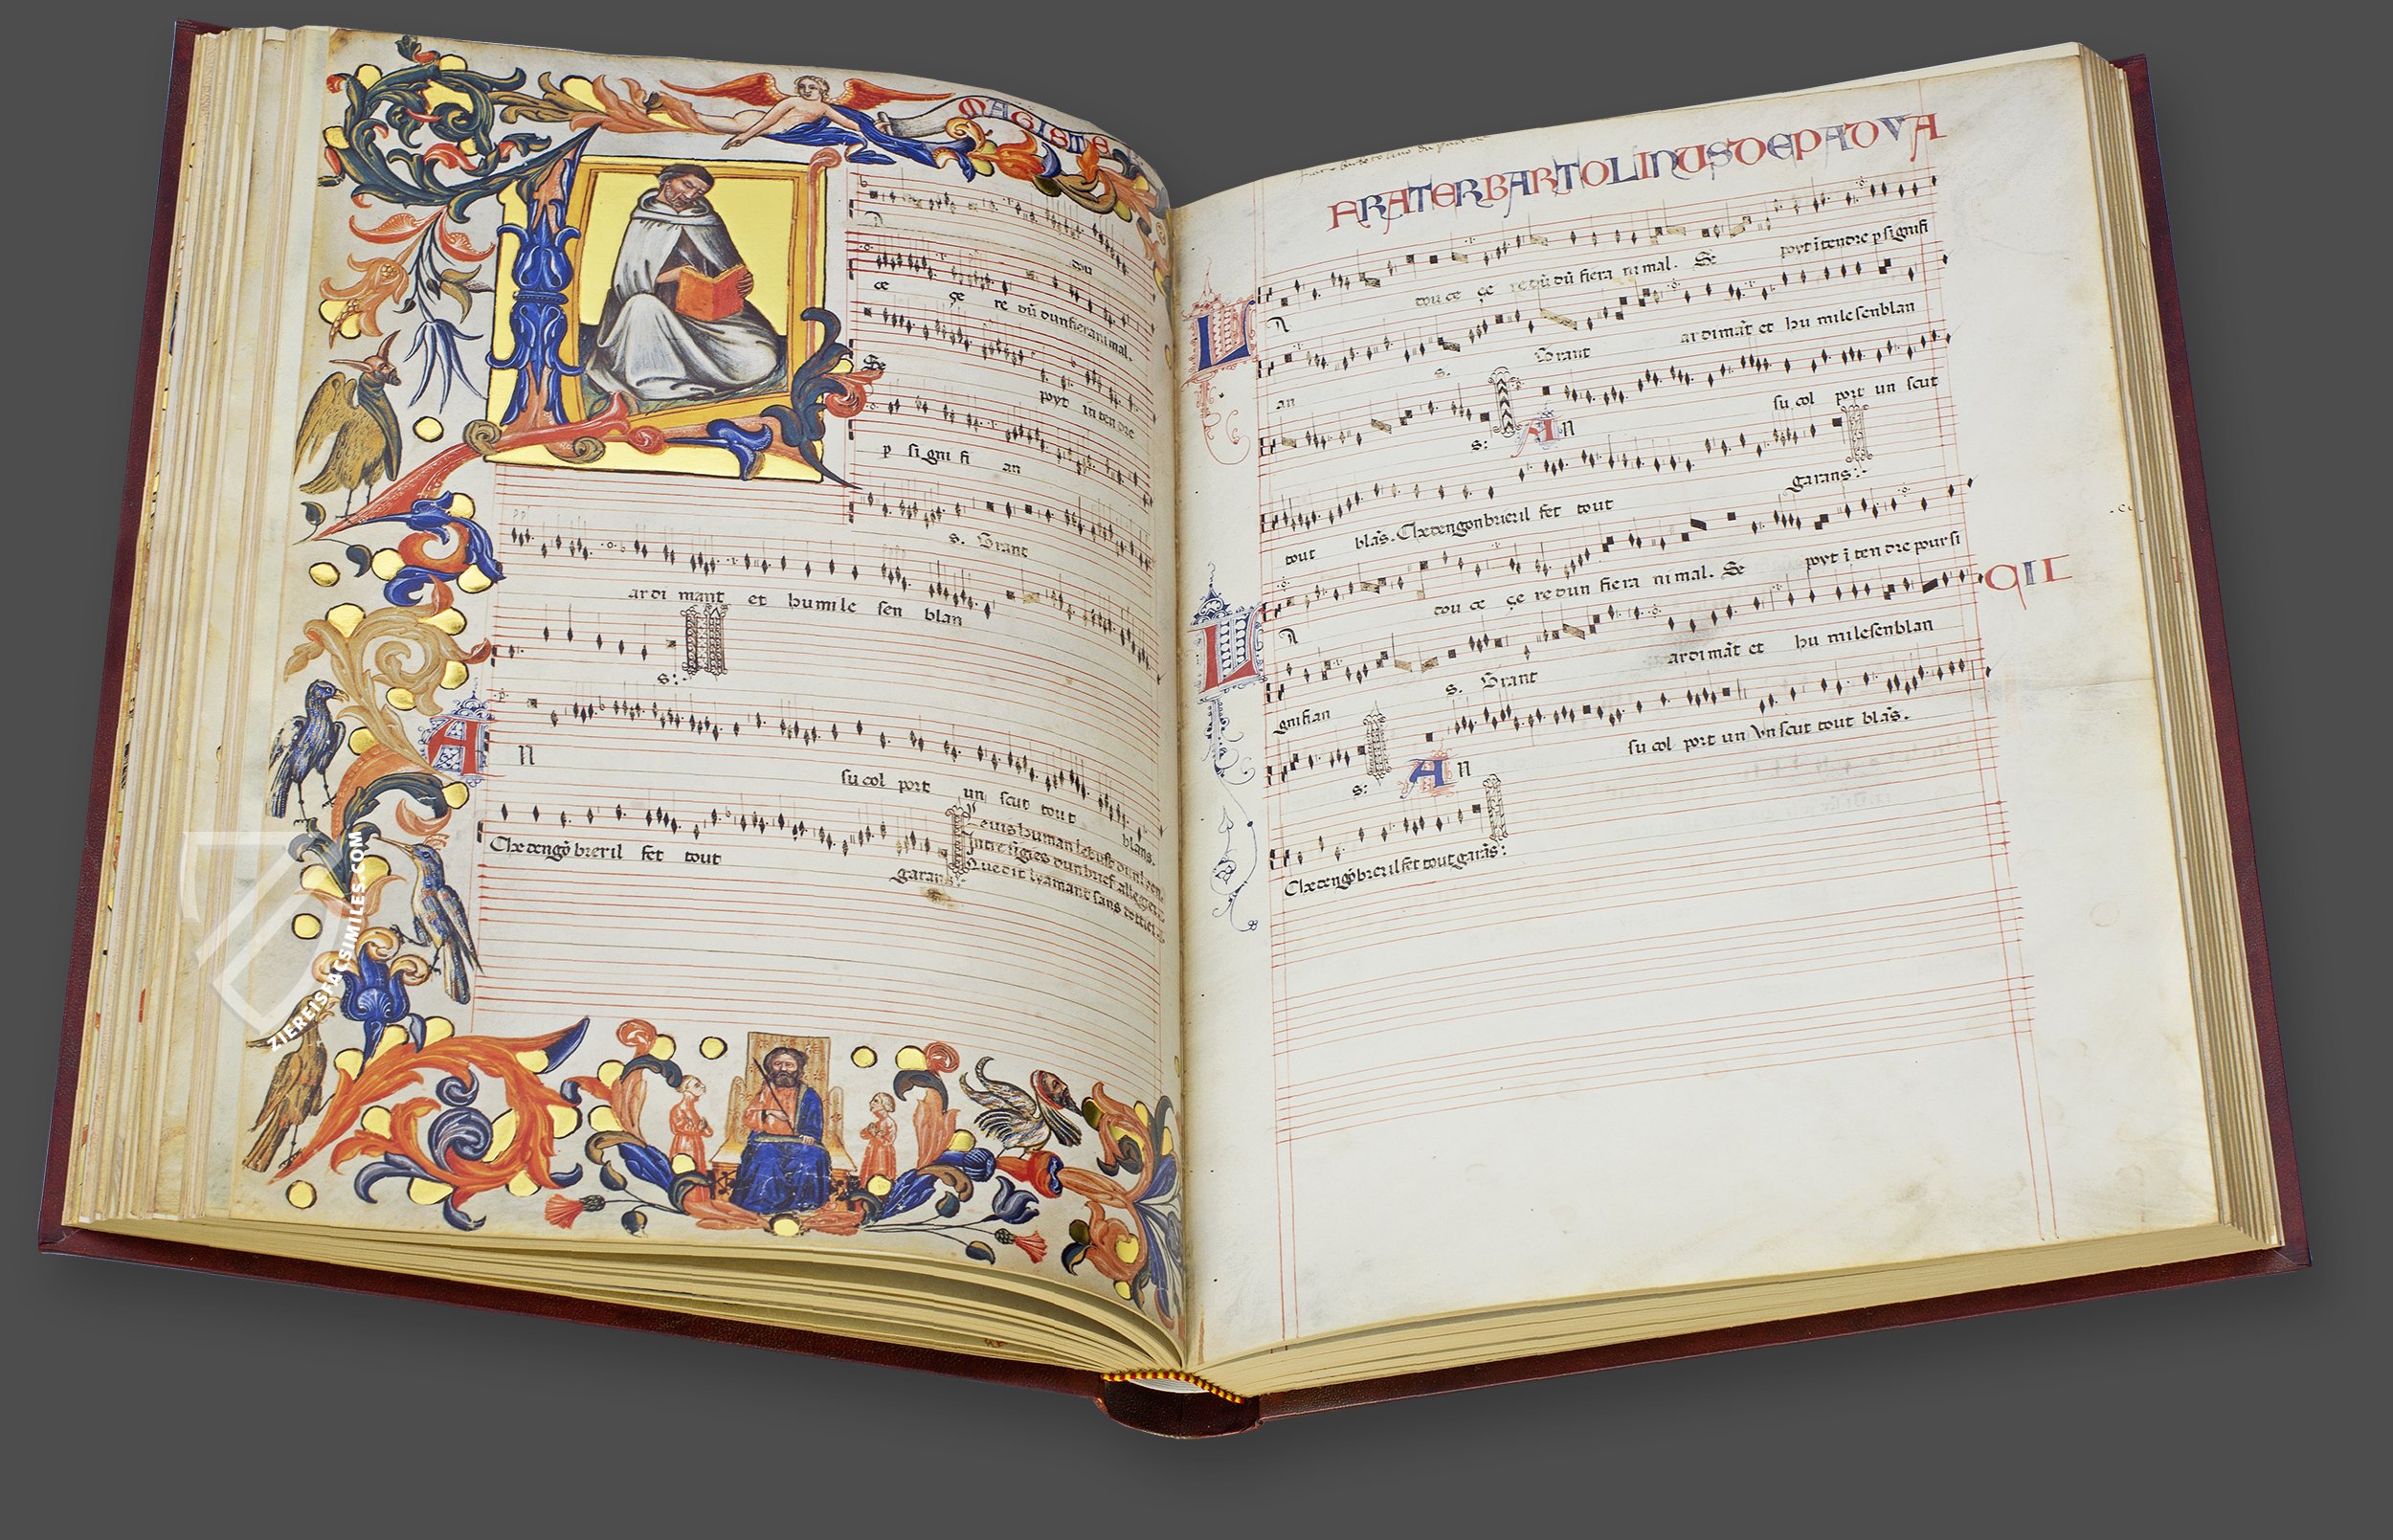 MAGISTE
tou
ce çe re dũ dun fier animal.
Se poyt in ten dre
p si gni fi an
s. Grant
ar di mant et humile sen blan
s:
A n su col port un scut tout blans.
Cħe tengõ breril fet tout garans:
FRATER BARTOLINUS DE PADVA
L A tou ce çe re dũ dũ fiera ni mal. Se poyt ĩ tendre p signifi
an s. Grant ar di mãt et hu mile senblan
s: A n su col port un scut
tout blãs. Cħe tengon breril fet tout garans:
L A tou ce çe re dun fiera ni mal. Se poyt ĩ ten dre pour si
gnifian s. Grant ar di mãt et hu mile senblan
s: A n su col port un Vn scut tout blãs.
Cħe tengõ breril fet tout garãs:
CII
ZIEREISFACSIMILES.COM